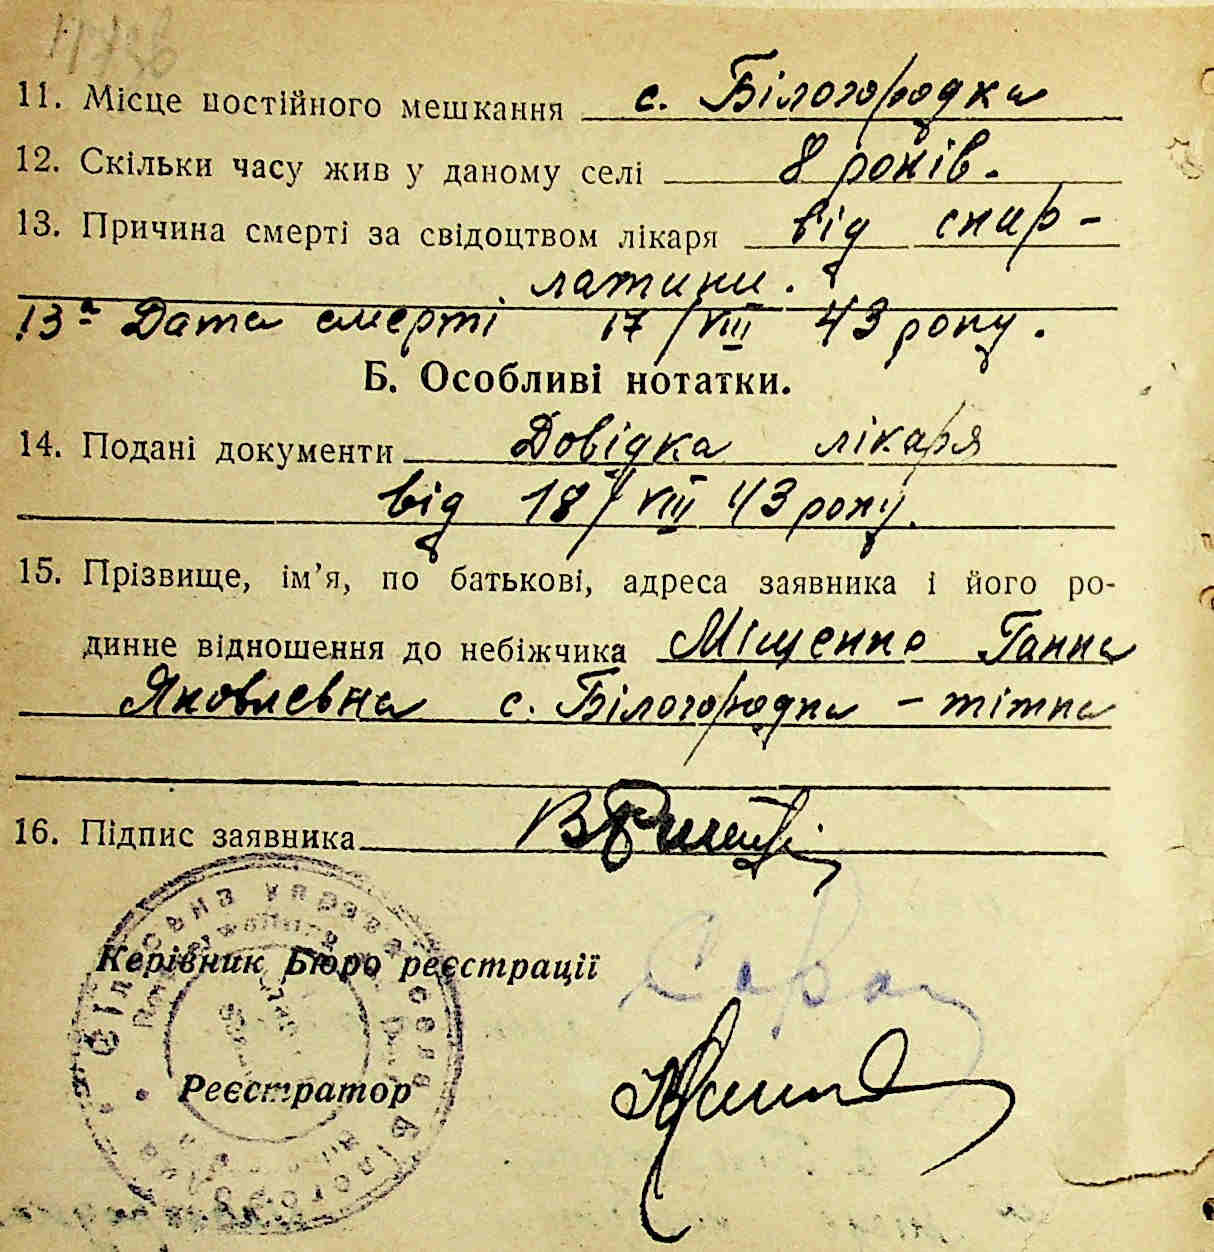 11. Місце постійного мешкання с. Білогородка
12. Скільки часу жив у даному селі 8 років.
13. Причина смерті за свідоцтвом лікаря від скар-
латини.
13а Дата смерті 17/VIII 43 року.
Б. Особливі нотатки.
14. Подані документи Довідка лікаря
від 18/VIII 43 року.
15. Прізвище, ім’я, по батькові, адреса заявника і його ро-
динне відношення до небіжчика Міщенко Ганна
Яковлевна с. Білогородка – тітка
16. Підпис заявника
Сільська управа села Білогор
Керівник Бюро реєстрації
Реєстратор